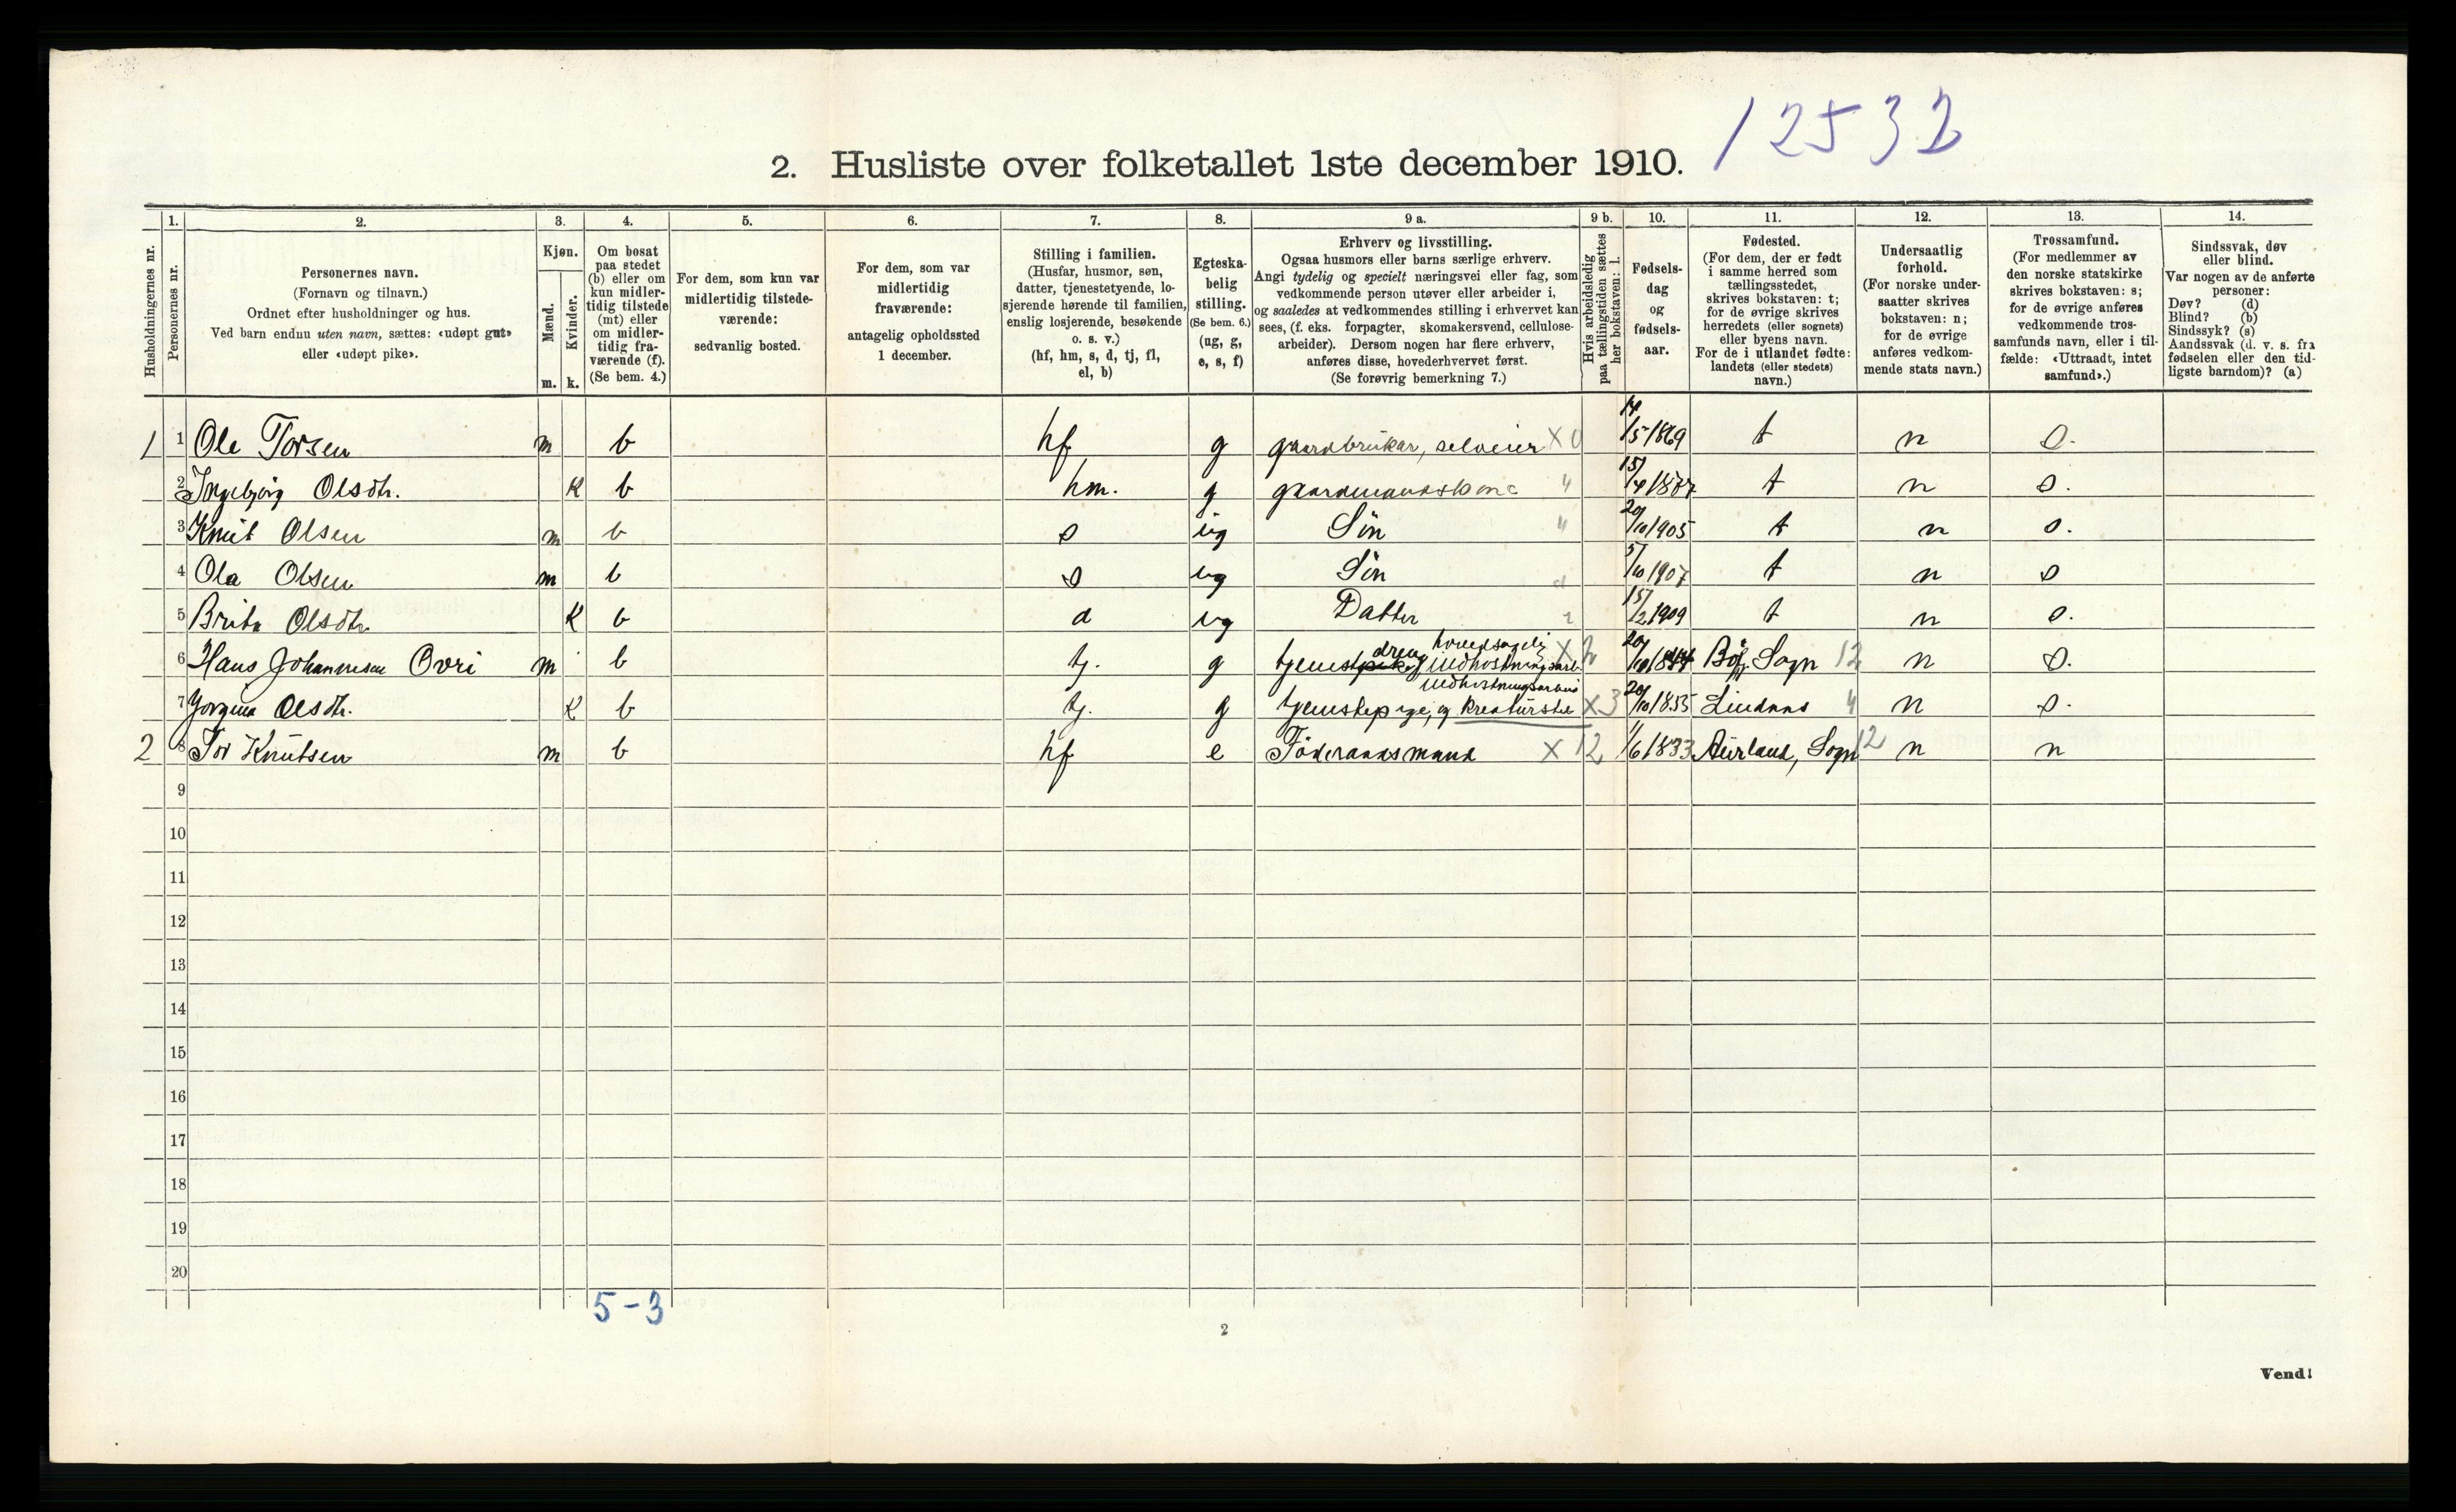 12532
2. Husliste over folketallet 1ste december 1910.
Husholdningernes nr.
1.
Personernes nr.
2.
Personernes navn.
(Fornavn og tilnavn.)
Ordnet efter husholdninger og hus.
Ved barn endnu uten navn, sættes: «udøpt gut»
eller «udøpt pike».
3.
Kjøn.
Mænd.
Kvinder.
m. k.
4.
Om bosat
paa stedet
(b) eller om
kun midler-
tidig tilstede
(mt) eller
om midler-
tidig fra-
værende (f).
(Se bem. 4.)
5.
For dem, som kun var
midlertidig tilstede-
værende:
sedvanlig bosted.
6.
For dem, som var
midlertidig
fraværende:
antagelig opholdssted
1 december.
7.
Stilling i familien.
(Husfar, husmor, søn,
datter, tjenestetyende, lo-
sjerende hørende til familien,
enslig losjerende, besøkende
o. s. v.)
(hf, hm, s, d, tj, fl,
el, b)
8.
Egteska-
belig
stilling.
(Se bem. 6.)
(ug, g,
e, s, f)
9 a.
Erhverv og livsstilling.
Ogsaa husmors eller barns særlige erhverv.
Angi tydelig og specielt næringsvei eller fag, som
vedkommende person utøver eller arbeider i,
og saaledes at vedkommendes stilling i erhvervet kan
sees, (f. eks. forpagter, skomakersvend, cellulose-
arbeider). Dersom nogen har flere erhverv,
anføres disse, hovederhvervet først.
(Se forøvrig bemerkning 7.)
9 b.
Hvis arbeidsledig
paa tællingstiden sættes
her bokstaven: l.
10.
Fødsels-
dag
og
fødsels-
aar.
11.
Fødested.
(For dem, der er født
i samme herred som
tællingsstedet,
skrives bokstaven: t;
for de øvrige skrives
herredets (eller sognets)
eller byens navn.
For de i utlandet fødte:
landets (eller stedets)
navn.)
12.
Undersaatlig
forhold.
(For norske under-
saatter skrives
bokstaven: n;
for de øvrige
anføres vedkom-
mende stats navn.)
13.
Trossamfund.
(For medlemmer av
den norske statskirke
skrives bokstaven: s;
for de øvrige anføres
vedkommende tros-
samfunds navn, eller i til-
fælde: «Uttraadt, intet
samfund».)
14.
Sindssvak, døv
eller blind.
Var nogen av de anførte
personer:
Døv? (d)
Blind? (b)
Sindssyk? (s)
Aandssvak (d. v. s. fra
fødselen eller den tid-
ligste barndom)? (a)
1 1 Ole Torsen m b hf g gaardbrukar, selveier X 0 14/5 1869 t n s.
2 Ingebjørg Olsdtr. K b hm. g gaardmandskone " 15/4 t n s.
3 Knut Olsen m b s ug Sön " 20/10 1905 t n s.
4 Ola Olsen m b s ug Sön 5/10 1907 t n s
5 Brita Olsdtr K b d ug Datter 15/2 1909 t n s.
6 Hans Johannesen Ovri m b tj. g tjenestdreng, hovedsagelig indhöstningsarb. X 20/10 Sogn 12 n s.
7 Jorgina Olsdtr. K b tj. g tjenestepige, og Kreaturstel indhöstningsarbeid X 3 20/10 1855 Lindaas 4 n s.
2 8 Tor Knutsen m b hf e Föderaadsmand X 12 1/6 1833 Aurland, Sogn 12 n n
9
10
11
12
13
14
15
16
17
18
19
20
5-3
2
Vend!